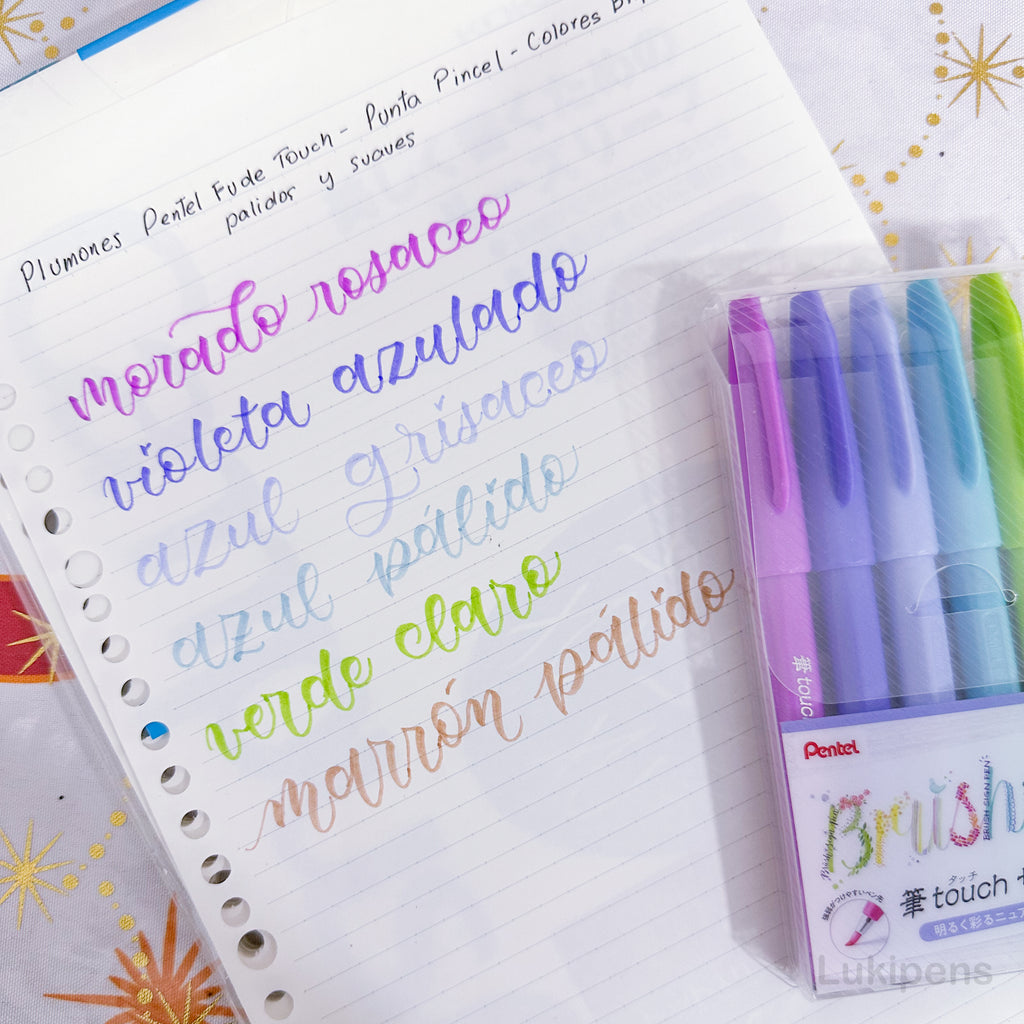 Plumones Pentel Fude Touch - Punta Pincel - Colores
palidos y suaves
morado rosaceo
violeta azulado
azul grisaceo
azul pálido
verde claro
marrón pálido
筆touch
Pentel
Brush
BRUSH SIGN PEN
タッチ
筆touch
強弱がつけやすいペン先
明るく彩るニュア
Lukipens